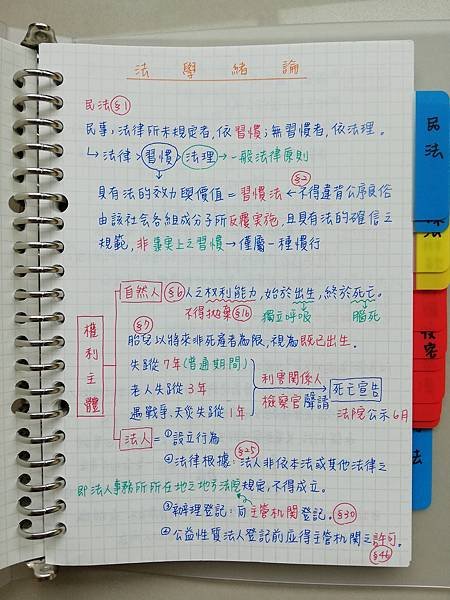 法學緒論
民法§1
民事,法律所未規定者,依習慣;無習慣者,依法理。
↳法律>習慣>法理→一般法律原則
具有法的效力與價值=習慣法←不得違背公序良俗 §2
由該社會各組成分子所反覆實施,且具有法的確信之
規範,非事實上之習慣→僅屬一種慣行
權利主體
自然人§6人之权利能力,始於出生,終於死亡。
不得拋棄§16 獨立呼吸 腦死
§7
胎兒以將來非死產者為限,視為既已出生。
失蹤7年(普通期間)
老人失蹤3年
遇戰爭、天災失蹤1年
利害關係人
檢察官聲請→死亡宣告
法院公示6月
法人=①設立行為
②法律根據:法人非依本法或其他法律之 §25
即法人事務所所在地之地方法院規定,不得成立。
③辦理登記:向主管机関登記。§30
④公益性質法人登記前应得主管机関之許可。
§46
民法
法